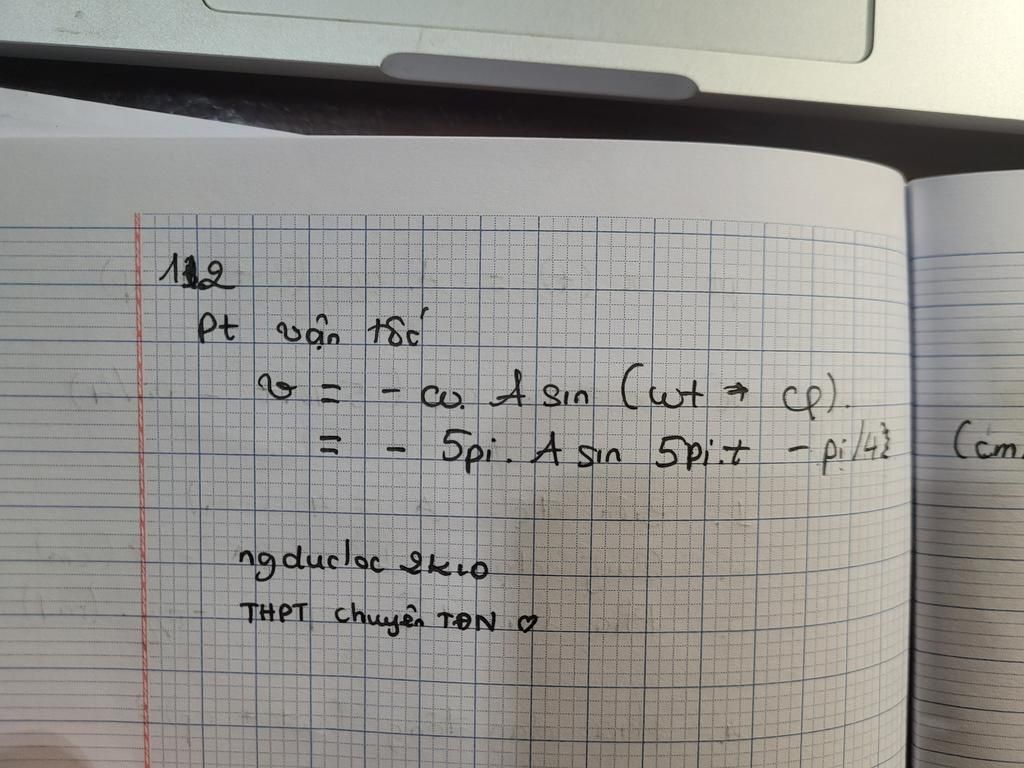 112
Pt vận tốc
v = - ω. A sin (ωt + φ).
= - 5pi. A sin 5pi.t - pi/4} (cm
ngducloc 2k10
THPT chuyên TĐN ♡